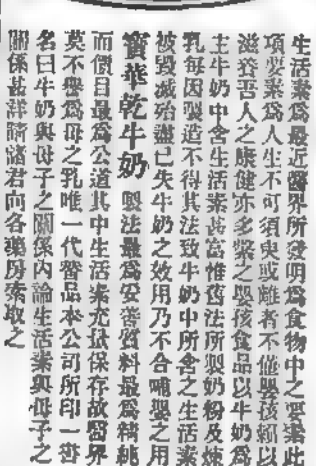 生活素爲最近醫界所發明爲食物中之要素此
項要素爲人生不可須臾或離者不僅嬰孩賴以
滋養吾人之康健亦多繫之嬰孩食品以牛奶爲
主牛奶中含生活素甚富惟舊法所製奶粉及煉
乳每因製造不得其法致牛奶中所含之生活素
被毀滅殆盡已失牛奶之效用乃不合哺嬰之用
寶華乾牛奶 製法最爲安善質料最爲精純
而價目最爲公道其中生活素充足保存故醫界
莫不譽爲母之乳唯一代替品本公司所印一書
名曰牛奶與母子之關係內論生活素與母子之
關係甚詳請諸君向各藥房索取之